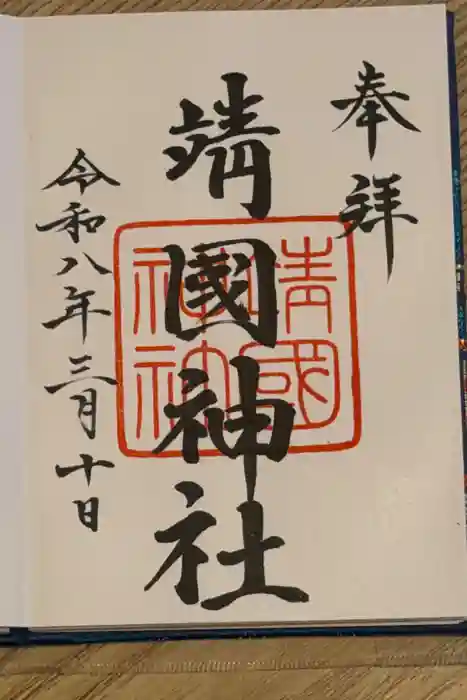 奉拜
靖國神社
靖國神社
令和八年三月十日